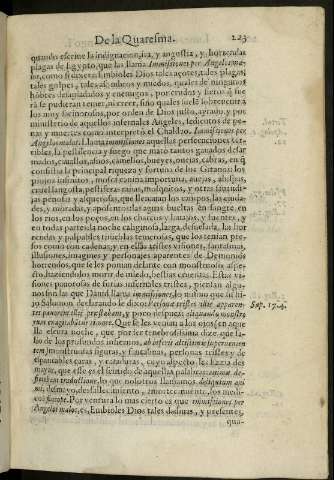 De la Quaresma. 223
quando escriue la indignacion, ira, y angustia, y horrendas
plagas de Egypto, que las llama Immissiones per Angelos ma-
los, como si dixera: Embioles Dios tales açotes, tales plagas,
tales golpes, tales assombros y miedos, quales de ningunos
hõbres delinquidos y enemigos, por crudos y fieros q̃ fue
rã se pudieran temer, ni creer, sino quales suele sobrevenir a
los muy facinorosos, por orden de Dios justo, ayrado, y por
ministerio de aquellos infernales Angeles, sedientos de pe-
nas y muertes como interpretò el Chaldeo. Immissiones per
Angelos malos. Llama immissiones aquellas persecuciones ter-
ribles, la pestilencia y fuego que matò tantos ganados de ar
mados, cauallos, asnos, camellos, bueyes, ouejas, cabras, en q̃
consistia la principal riqueza y fortuna de los Gitanos: los
piojos infinitos, mosca canina importuna, auejas, abispas,
cruel langosta, pestiferas ranas, mosquitos, y otras sauandi-
jas penosas y asquerosas, que llenauan los campos, las
des, y moradas, y apestauan las aguas bueltas en sangre, en
los rios, en los poços, en los charcos y lagunas, y fuentes, y
en todas partes la noche caliginosa, larga, desuelada, las hor
rendas y palpables tinieblas temerosas, que los tenian pre-
sos como con cadenas; y en essas tristes visiones, fantasmas,
illusiones, imagines y personajes aparentes de Demonios
horrendos, que se les ponian delante con monstruoso aspe-
cto, haziendoles morir de miedo, bestias cruentas. Estas vi-
siones pauorosas de furias infernales tristes, piensan algu-
nos son las que Dauid llama immissiones, lo mismo que su hi-
jo Salomon declarando le dixo: Personæ tristes illis apparen-
tes pauorem illis præstabant, y poco despues; aliquando monstro-
rum exagitabantur timore. Que se les venian a los ojos, en aque
lla escura noche, que por ser tenebrosissima dize, que sa-
lio de los profundos infiernos, ab inferis altissimis superuenien-
tem, monstruosas figuras, y fantasmas, personas tristes y de
espantables caras, y cataduras, cuyo aspecto les hazia des
mayar, que esse es el sentido de aquellas palabras: animæ de-
ficiebant traductione, lo que nosotros llamamos deliquium ani-
mi, desmayo, desfallecimiento, amortecimiento, los medi-
cos syncope. Por ventura lo mas cierto es que immissiones per
Angelos malos, es, Embioles Dios tales desdichas, y presentes,
qua-
Sap. 17.4.